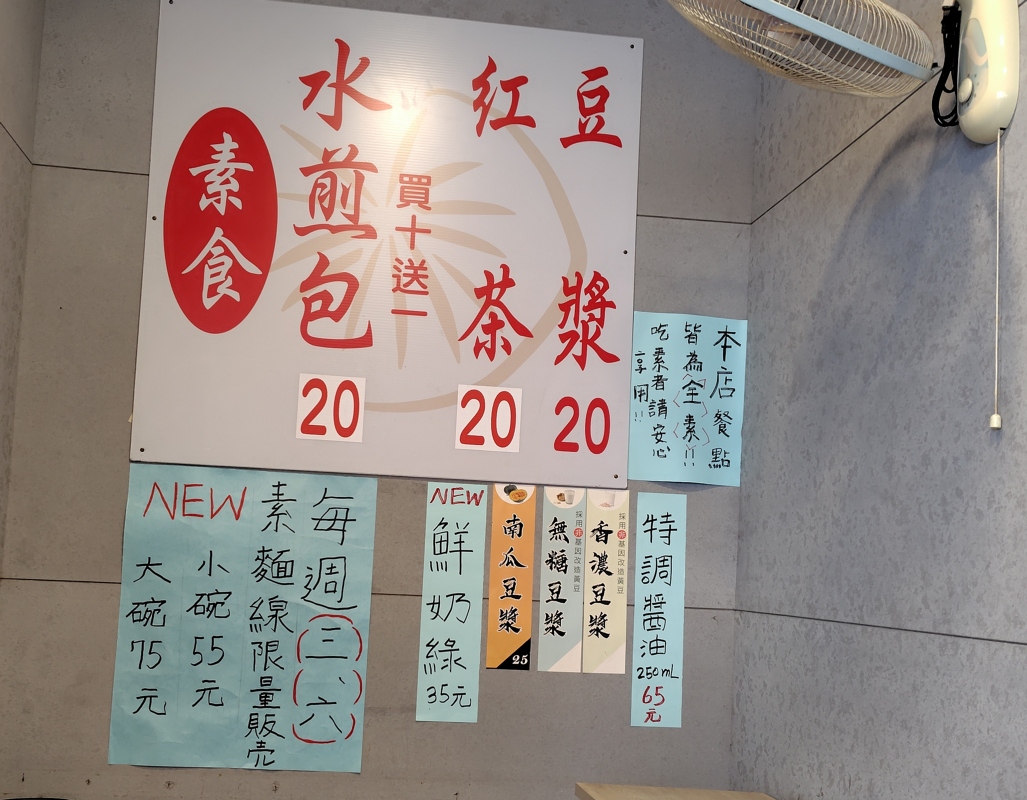 豆漿 20
紅茶 20
買十送一
水煎包 20
素食
本店餐點
皆為全素!!
吃素者請安心
享用!!
NEW
每週(三、六)
素麵線限量販売
小碗55元
大碗75元
NEW
鮮奶綠
35元
南瓜豆漿
25
無糖豆漿
採用非基因改造黃豆
香濃豆漿
採用非基因改造黃豆
特調醬油
250mL
65元